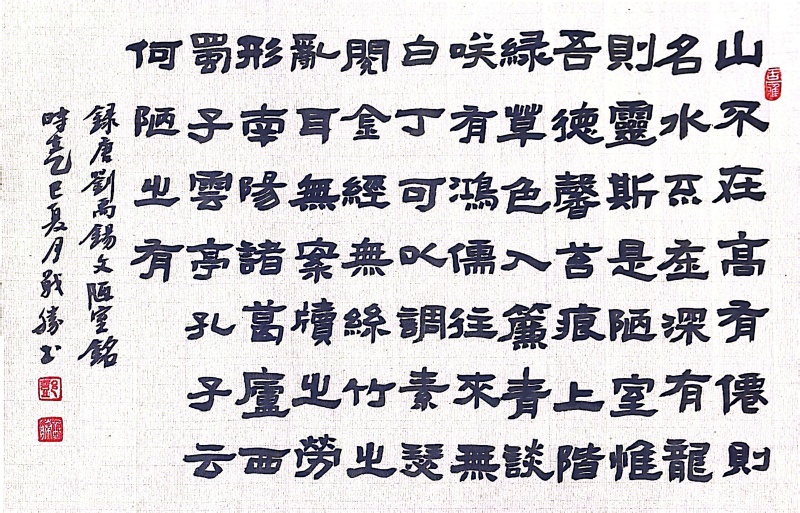 山不在高有僊則
名水不在深有龍
則靈斯是陋室惟
吾德馨苔痕上階
綠草色入簾青談
咲有鴻儒往來無
白丁可以調素琴
閱金經無絲竹之
亂耳無案牘之勞
形南陽諸葛廬西
蜀子雲亭孔子云
何陋之有
録唐劉禹錫文陋室銘
時在乙巳夏月戰勝书